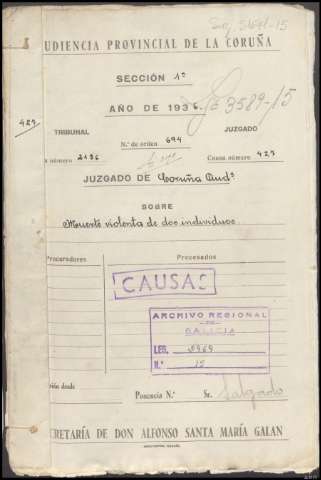 UDIENCIA PROVINCIAL DE LA CORUÑA
SECCIÓN 1ª
AÑO DE 1936
3589-15
429
TRIBUNAL
JUZGADO
N.º de orden 694
a número 2196
Causa número 423
JUZGADO DE Coruña Aud.ª
SOBRE
Muerte violenta de dos individuos
Procuradores
Procesados
CAUSAS
ARCHIVO REGIONAL
DE
GALICIA
LEG. 5969
N.º 15
ión desde
Ponencia N.º
Sr. Salgado
CRETARÍA DE DON ALFONSO SANTA MARÍA GALAN